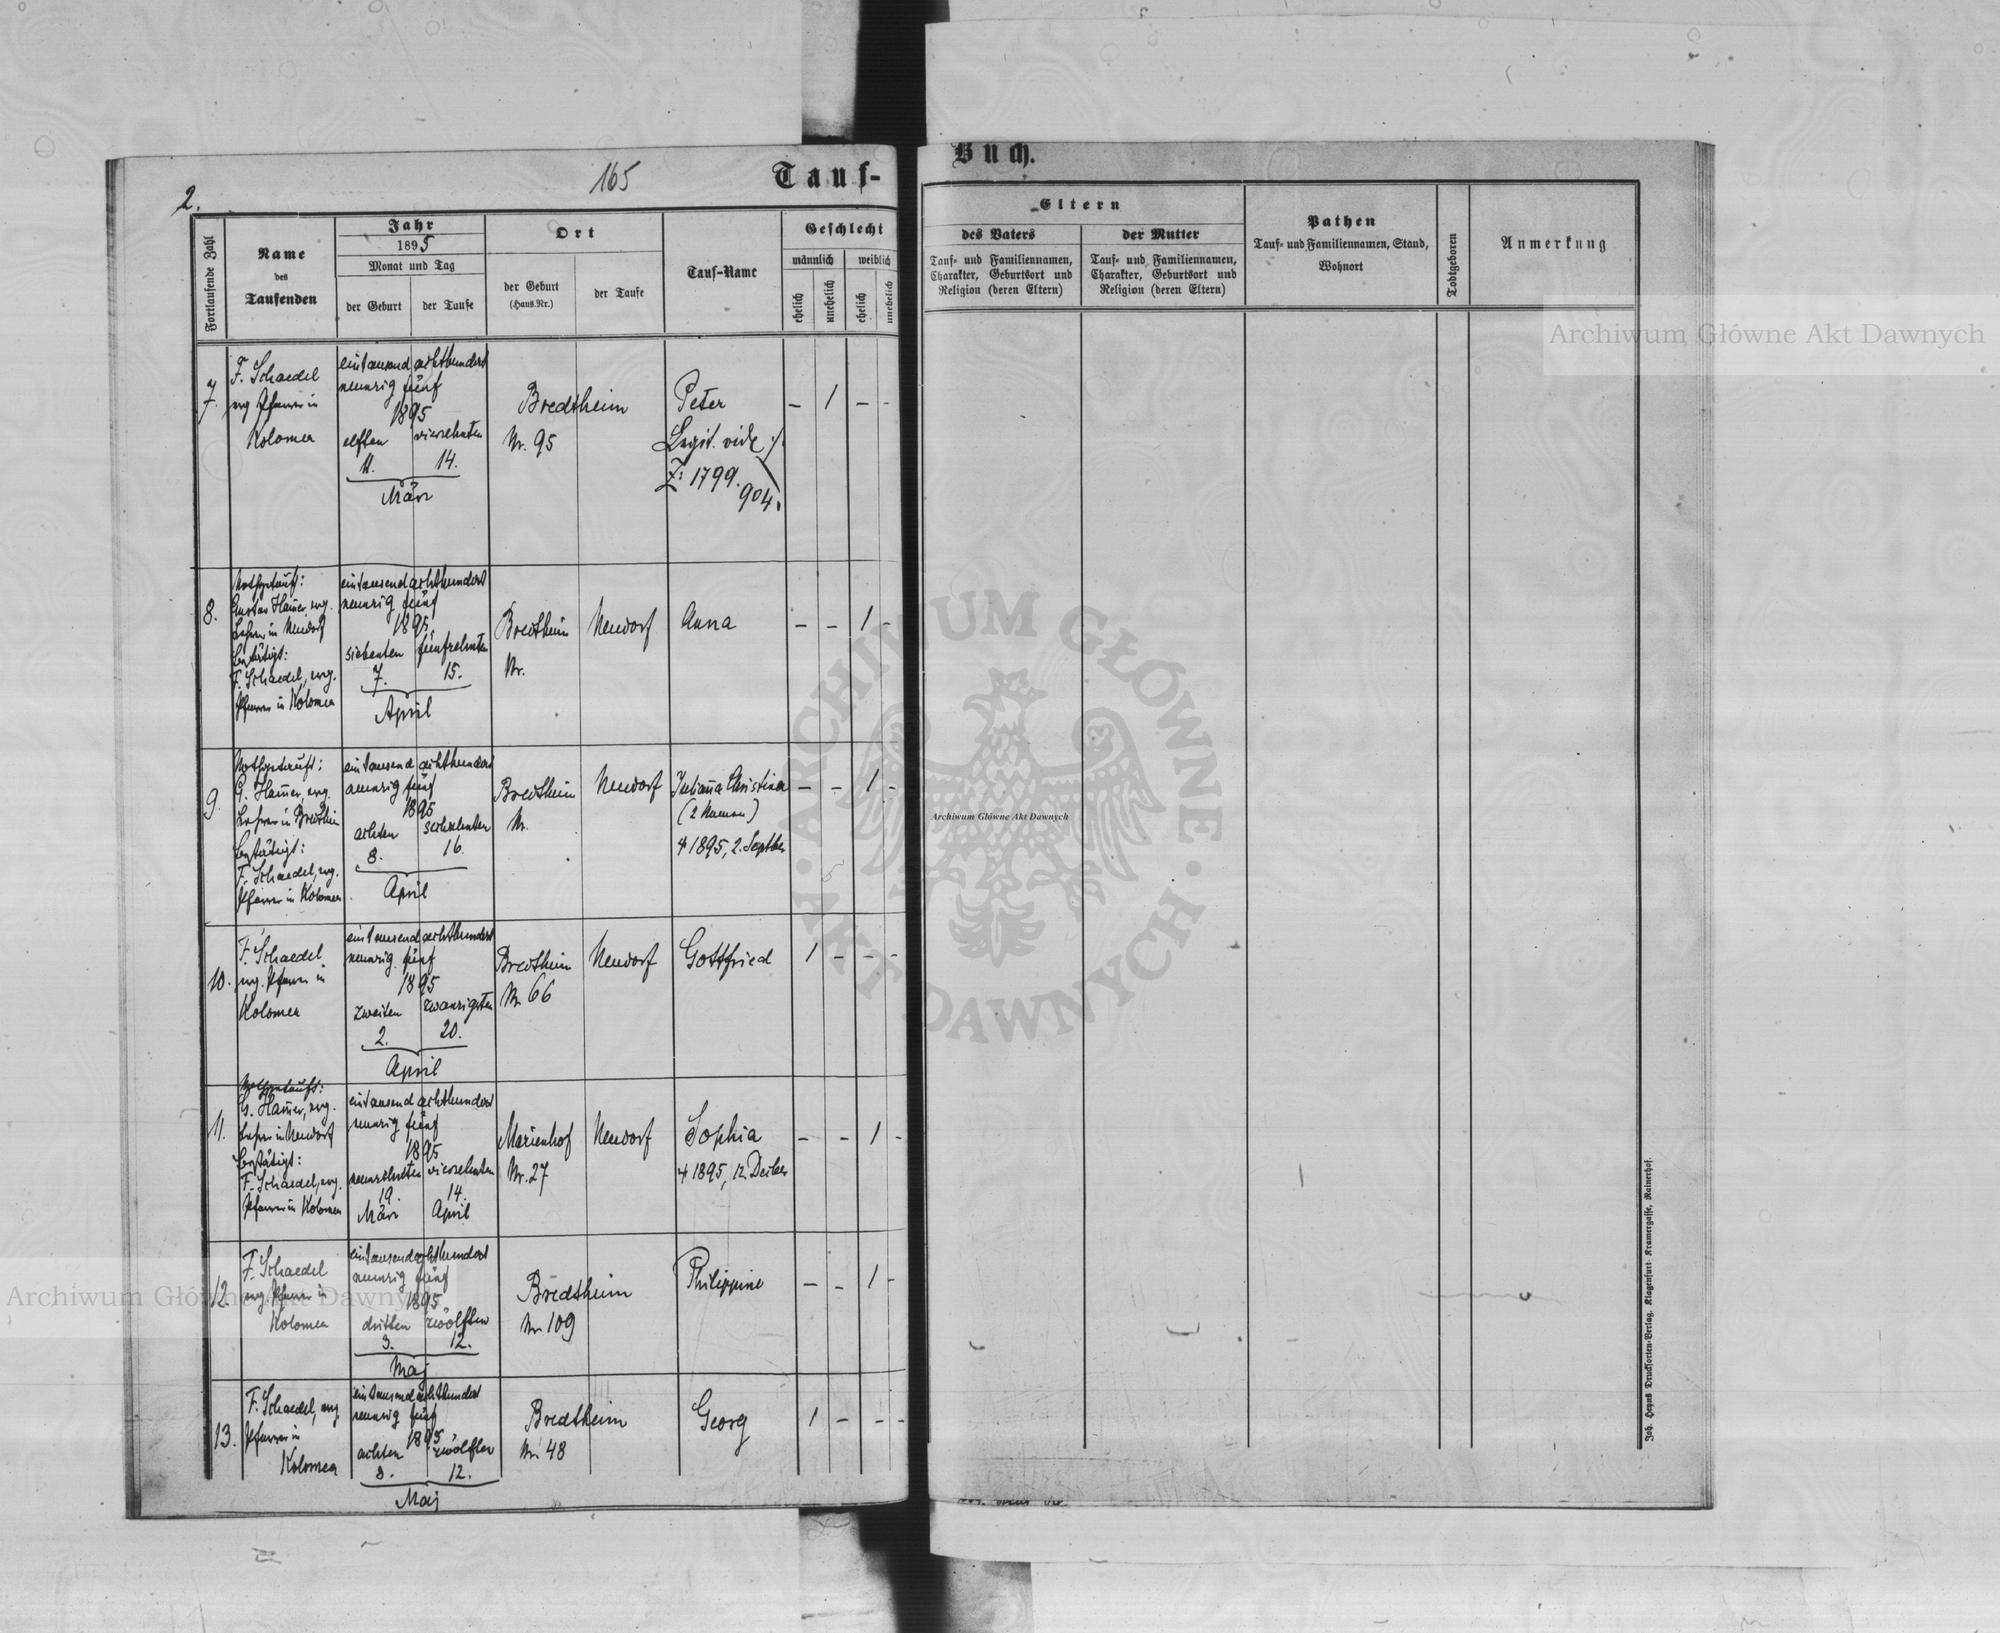 2.
165
Tauf-
Buch.
Fortlaufende Zahl
Name
des
Taufenden
Jahr
1895
Monat und Tag
der Geburt
der Taufe
Ort
der Geburt
(Haus-Nr.)
der Taufe
Tauf-Name
Geschlecht
männlich
weiblich
ehelich
unehelich
ehelich
unehelich
Eltern
des Vaters
Tauf- und Familiennamen,
Charakter, Geburtsort und
Religion (deren Eltern)
der Mutter
Tauf- und Familiennamen,
Charakter, Geburtsort und
Religion (deren Eltern)
Pathen
Tauf- und Familiennamen, Stand,
Wohnort
Todtgeboren
Anmerkung
7.
F. Schaedel
evg Pfarrer in
Kolomea
eintausend achthundert
neunzig fünf
1895
elften vierzehnten
11. 14.
März
Bredtheim
Nr. 95
Peter
Legit. vide
Z: 1799.
904.
– 1 – -
8.
Nothgetauft:
Gustav Hamer, evg.
Lehrer in Neudorf
bestätigt:
F. Schaedel, evg.
Pfarrer in Kolomea
eintausend achthundert
neunzig fünf
1895
siebenten fünfzehnten
7. 15.
April
Bredtheim
Nr.
Neudorf
Anna
– – 1 -
9.
Nothgetauft:
G. Hamer, evg.
Lehrer in Bredthein
bestätigt:
F. Schaedel, evg.
Pfarrer in Kolomea
eintausend achthundert
neunzig fünf
1895
achten sechzehnten
8. 16.
April
Bredtheim
Nr.
Neudorf
Juliana Christina
(2 Namen)
† 1895, 2. Septber
– – 1 -
10.
F. Schaedel
evg. Pfarrer in
Kolomea
eintausend achthundert
neunzig fünf
1895
zweiten zwanzigsten
2. 20.
April
Bredtheim
Nr 66
Neudorf
Gottfried
1 – – -
11.
Nothgetauft:
G. Hamer, evg.
Lehrer in Neudorf
bestätigt:
F. Schaedel, evg.
Pfarrer in Kolomea
eintausend achthundert
neunzig fünf
1895
neunzehnten vierzehnten
19. 14.
März April
Marienhof
Nr. 27
Neudorf
Sophia
† 1895, 12. Decber
– – 1 -
12.
F. Schaedel
evg. Pfarrer in
Kolomea
eintausend achthundert
neunzig fünf
1895
dritten zwölften
3. 12.
Maj
Bredtheim
Nr 109
Philippine
– – 1 -
13.
F. Schaedel, evg
Pfarrer in
Kolomea
eintausend achthundert
neunzig fünf
1895
achten zwölften
8. 12.
Maj
Bredtheim
Nr 48
Georg
1 – – -
Joh. Heyns Drucksorten-Verlag, Klagenfurt- Kramergasse, Rainerhof.
Archiwum Główne Akt Dawnych
Archiwum Główne Akt Dawnych
Archiwum Główne Akt Dawnych
· ARCHIWUM GŁÓWNE · AKT DAWNYCH